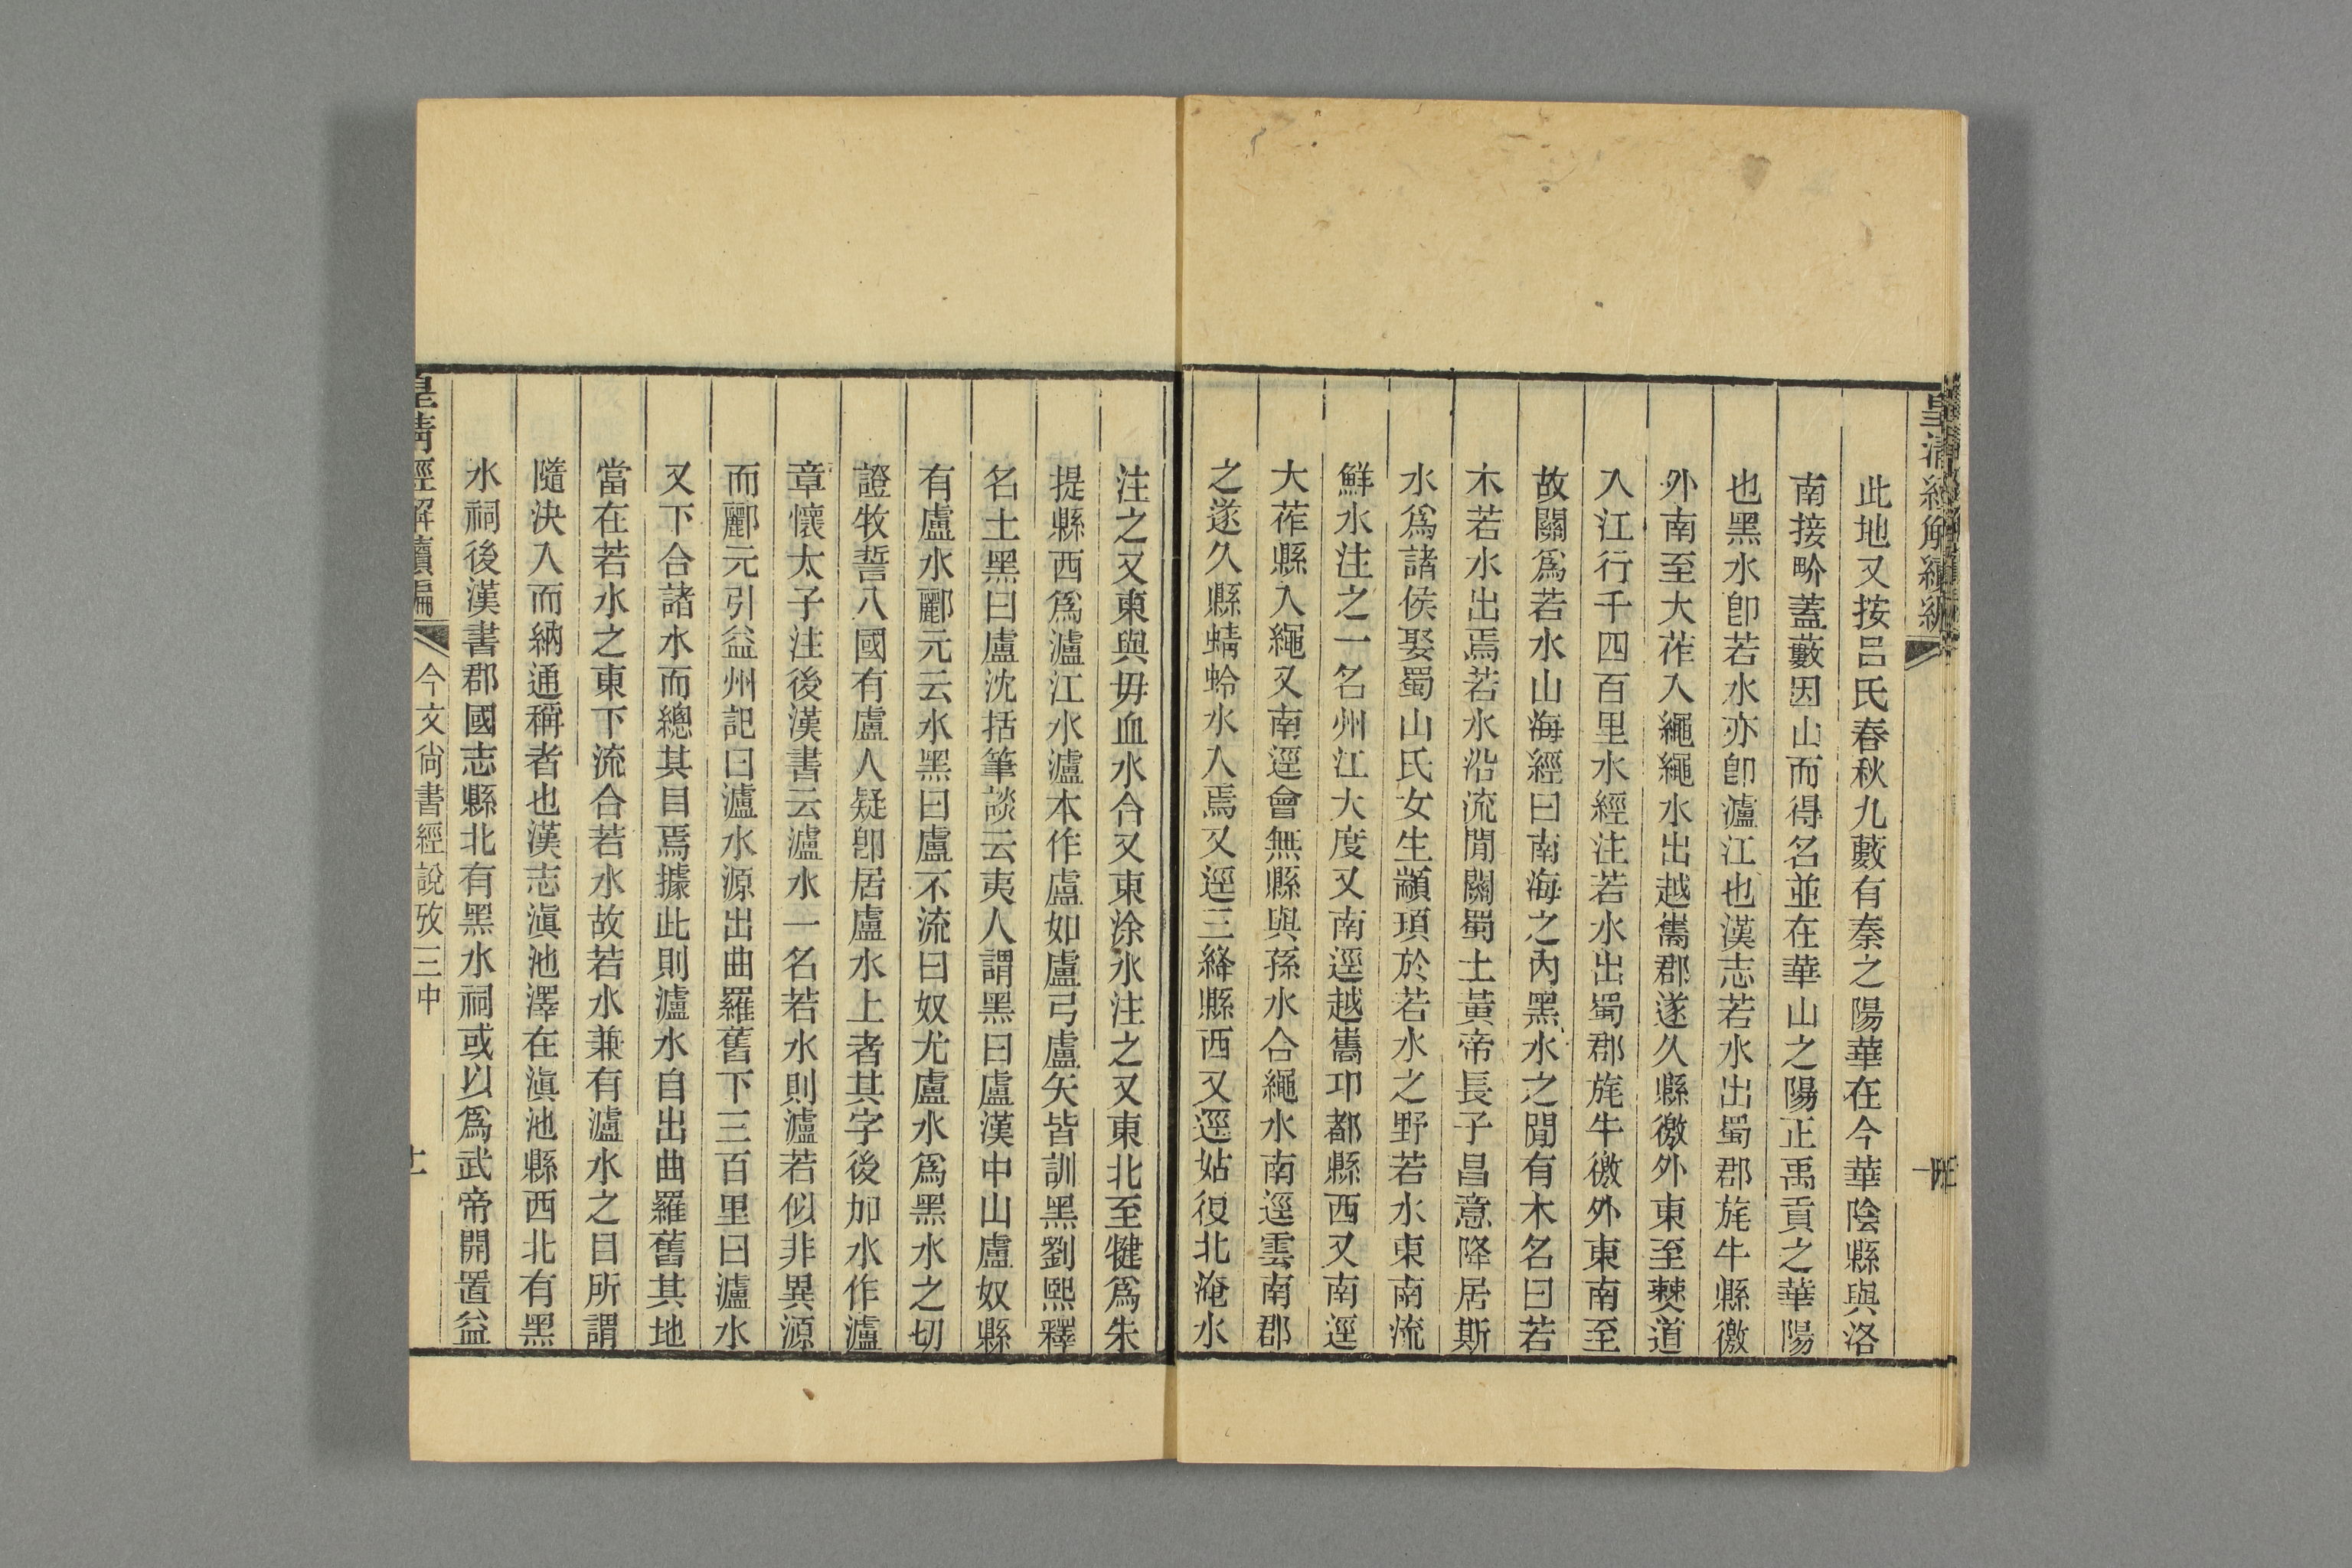 皇清經解續編
此地又按呂氏春秋九藪有秦之陽華在今華陰縣與洛
南接畍蓋藪因山而得名並在華山之陽正禹貢之華陽
也黑水卽若水亦卽瀘江也漢志若水出蜀郡旄牛縣徼
外南至大莋入繩繩水出越巂郡遂久縣徼外東至僰道
入江行千四百里水經注若水出蜀郡旄牛徼外東南至
故關爲若水山海經曰南海之內黑水之閒有木名曰若
木若水出焉若水沿流閒關蜀土黃帝長子昌意降居斯
水爲諸侯娶蜀山氏女生顓頊於若水之野若水東南流
鮮水注之一名州江大度又南逕越巂邛都縣西又南逕
大莋縣入繩又南逕會無縣與孫水合繩水南逕雲南郡
之遂久縣蜻蛉水入焉又逕三絳縣西又逕姑復北淹水
注之又東與毋血水合又東涂水注之又東北至犍爲朱
提縣西爲瀘江水瀘本作盧如盧弓盧矢皆訓黑劉熙釋
名土黑曰盧沈括筆談云夷人謂黑曰盧漢中山盧奴縣
有盧水酈元云水黑曰盧不流曰奴尤盧水爲黑水之切
證牧誓八國有盧人疑卽居盧水上者其字後加水作瀘
章懷太子注後漢書云瀘水一名若水則瀘若似非異源
而酈元引益州記曰瀘水源出曲羅舊下三百里曰瀘水
又下合諸水而總其目焉據此則瀘水自出曲羅舊其地
當在若水之東下流合若水故若水兼有瀘水之目所謂
隨決入而納通稱者也漢志滇池澤在滇池縣西北有黑
水祠後漢書郡國志縣北有黑水祠或以爲武帝開置益
皇清經解續編
今文尙書經說攷三中